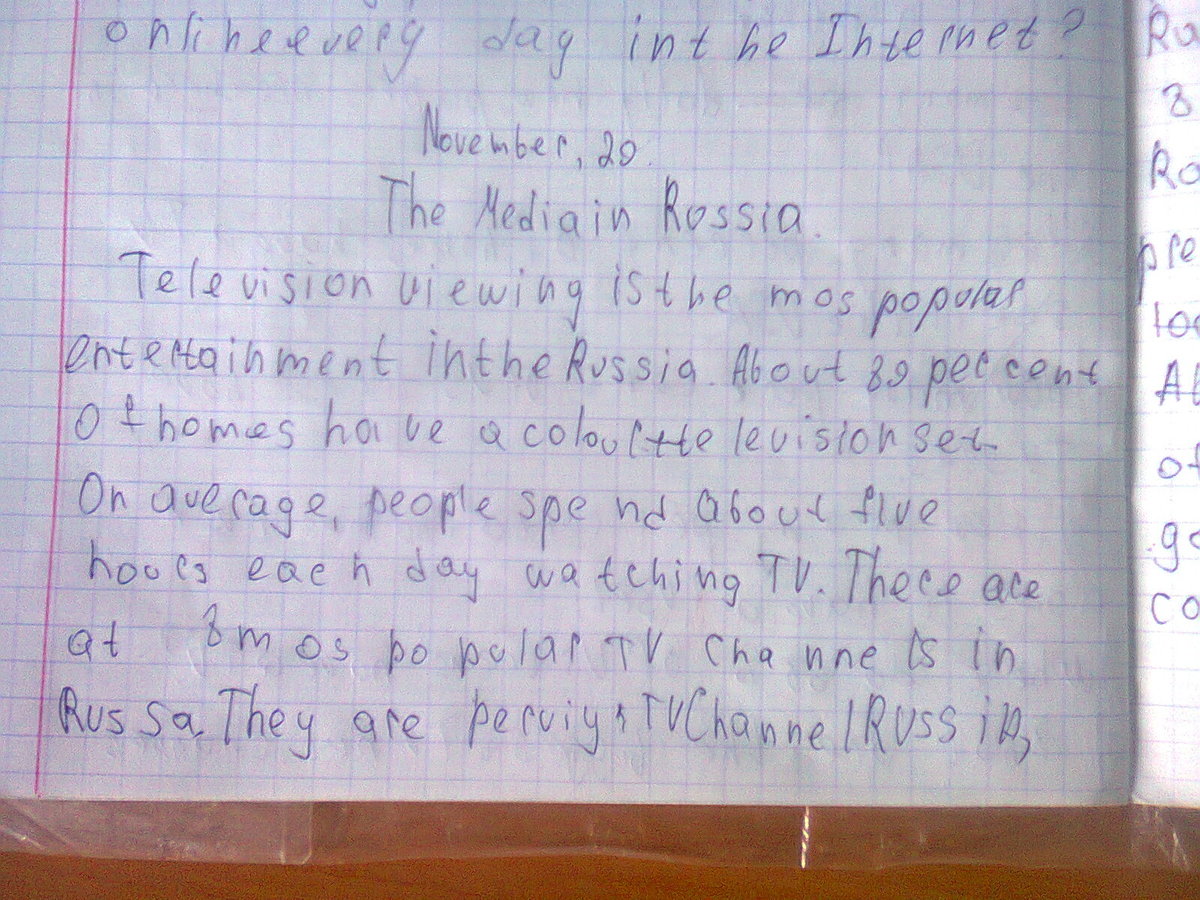 online every day in the Internet?
November, 20.
The Media in Russia.
Television viewing is the mos popular
entertainment in the Russia. About 89 per cent
Of homes have a colour ttelevision set
On average, people spend about five
hours each day watching TV. There are
at 8 mos popular TV channels in
Russa, They are perviy, TV Channel Russia,
Ro
8
Ro
pre
of
co